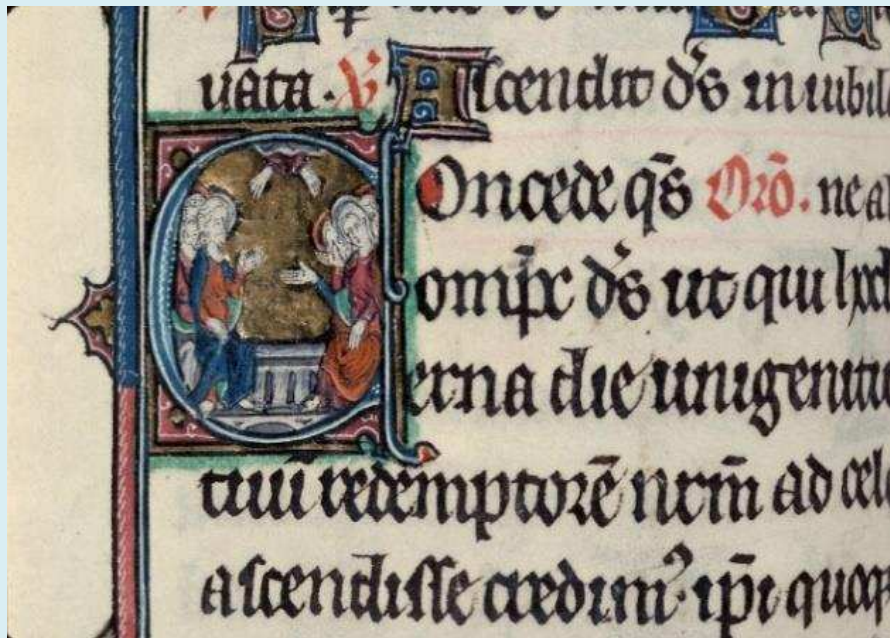 uata. ℣ Ascendit dṡ in iubil
Concede q̄s Orō. ne a
omp̄c ds̄ ut qui
erna die unigenitu
tuū redemptorē nrm̄ ad cel
ascendisse credim⁹. ip̄i quoq